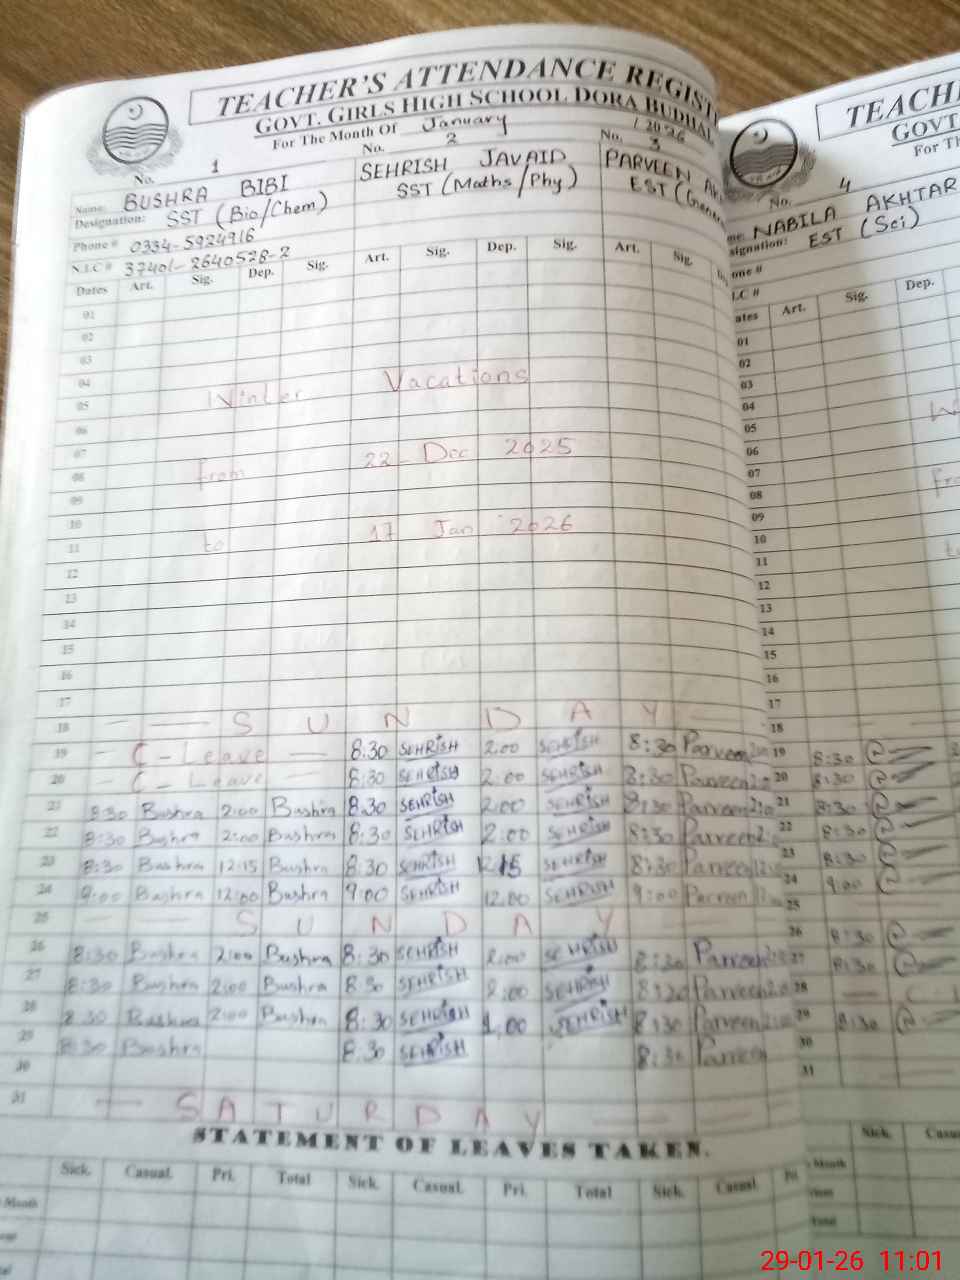 TEACHER'S ATTENDANCE REGIST
GOVT. GIRLS HIGH SCHOOL DORA BUDHAL
For The Month Of January / 2026
No. 1 No. 2 No. 3
Name: BUSHRA BIBI SEHRISH JAVAID PARVEEN AK
Designation: SST (Bio/Chem) SST (Maths/Phy) EST (Gener
Phone # 0334-5924916
N.I.C # 37401-2640528-2
Dates Art. Sig. Dep. Sig. Art. Sig. Dep. Sig. Art. Sig.
01
02
03
04
05 Winter Vacations
06
07
08 from 22 Dec 2025
09
10
11 to 17 Jan 2026
12
13
14
15
16
17
18 SUNDAY
19 C-Leave 8:30 SEHRISH 2:00 SEHRISH 8:30 Parveen
20 C-Leave 8:30 SEHRISH 2:00 SEHRISH 8:30 Parveen
21 8:30 Bushra 2:00 Bushra 8:30 SEHRISH 2:00 SEHRISH 8:30 Parveen
22 8:30 Bushra 2:00 Bushra 8:30 SEHRISH 2:00 SEHRISH 8:30 Parveen
23 8:30 Bushra 12:15 Bushra 8:30 SEHRISH 12:15 SEHRISH 8:30 Parveen
24 9:00 Bushra 12:00 Bushra 9:00 SEHRISH 12:00 SEHRISH 9:00 Parveen
25 SUNDAY
26 8:30 Bushra 2:00 Bushra 8:30 SEHRISH 2:00 SEHRISH 8:30 Parveen
27 8:30 Bushra 2:00 Bushra 8:30 SEHRISH 2:00 SEHRISH 8:30 Parveen
28 8:30 Bushra 2:00 Bushra 8:30 SEHRISH 2:00 SEHRISH 8:30 Parveen
29 8:30 Bushra 8:30 SEHRISH 8:30 Parveen
30
31 SATURDAY
STATEMENT OF LEAVES TAKEN.
Sick. Casual. Pri. Total Sick. Casual. Pri. Total Sick. Casual. Pri.
Month
TEACHE
GOVT
For Th
No. 4
me: NABILA AKHTAR
signation: EST (Sci)
one #
I.C #
ates Art. Sig. Dep.
01
02
03
04
05
06
07
08
09
10
11
12
13
14
15
16
17
18
19 8:30
20 8:30
21 8:30
22 8:30
23 8:30
24 9:00
25
26 8:30
27 8:30
28
29 8:30
30
31
Sick. Casu
Month
Total
29-01-26 11:01